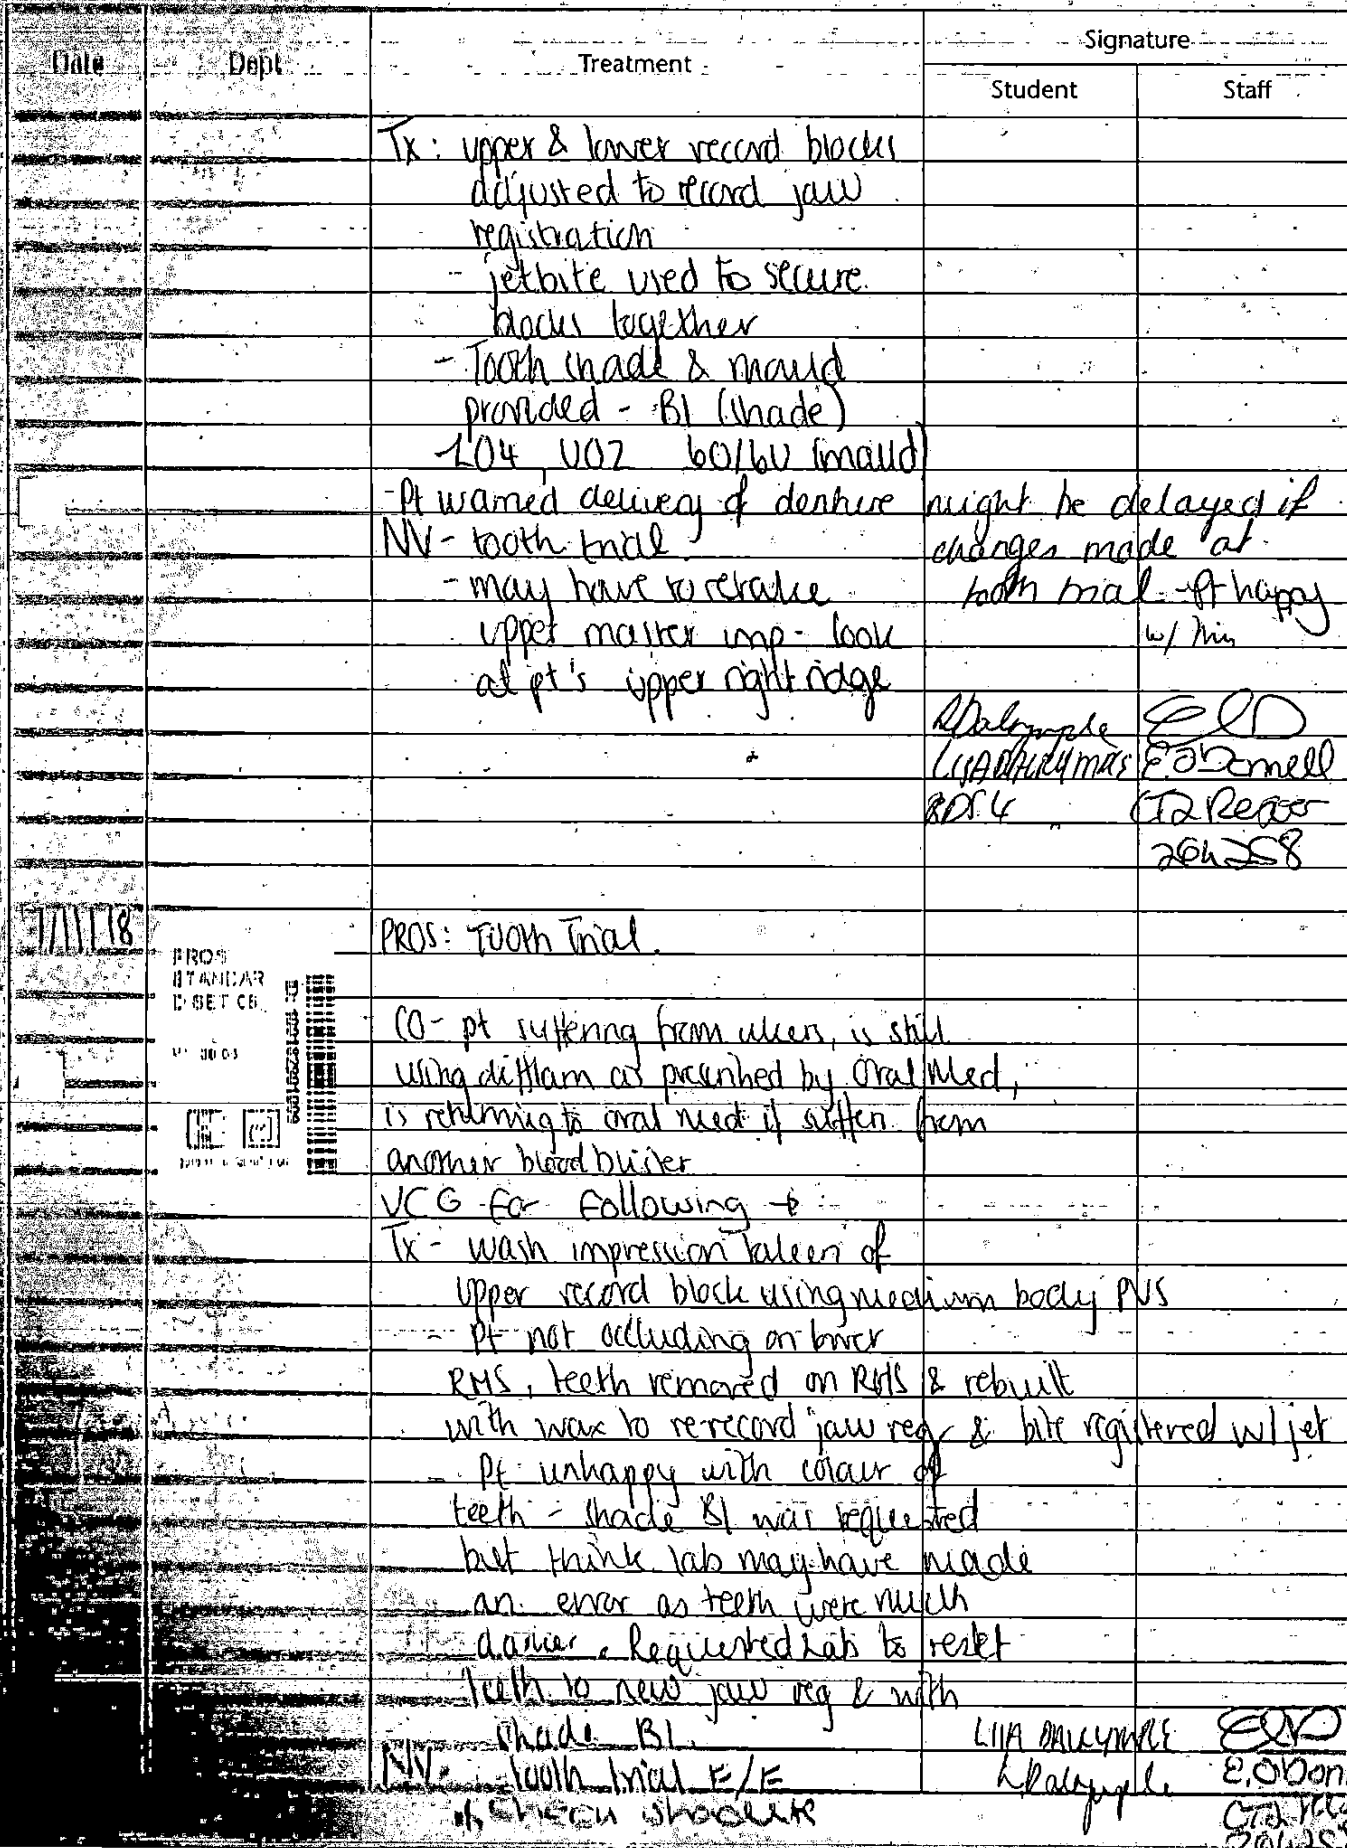 Date Dept Treatment Signature
Student Staff
Tx: upper & lower record blocks
adjusted to record jaw
registration
- jetbite used to secure
blocks together
- Tooth shade & mould
provided - B1 (shade)
L04, U02 60/6U (mould)
- Pt warned delivery of denture might be delayed if
NV - tooth trial changes made at
- may have to retake tooth trial - Pt happy
upper master imp - look w/ this
at pt's upper right ridge
LDalrymple
LISA DALRYMPLE E.O'Donnell
BDS 4 CT2 Restor
264258
7/11/18 PROS: Tooth Trial.
PROS
STANDAR
D SET CB
CO - pt suffering from ulcers, is still
using difflam as prescribed by Oral Med,
is returning to oral med if suffers from
another blood blister
VCG for following
Tx - wash impression taken of
upper record block using medium body PVS
- Pt not occluding on lower
RHS, teeth removed on RHS & rebuilt
with wax to re-record jaw reg & bite registered w/ jet
- Pt unhappy with colour of
teeth - shade B1 was requested
but think lab may have made
an error as teeth were much
darker. Requested lab to reset
teeth to new jaw reg & with
shade B1. LISA DALRYMPLE
NV - tooth trial F/F LDalrymple E.O'Don
check shade